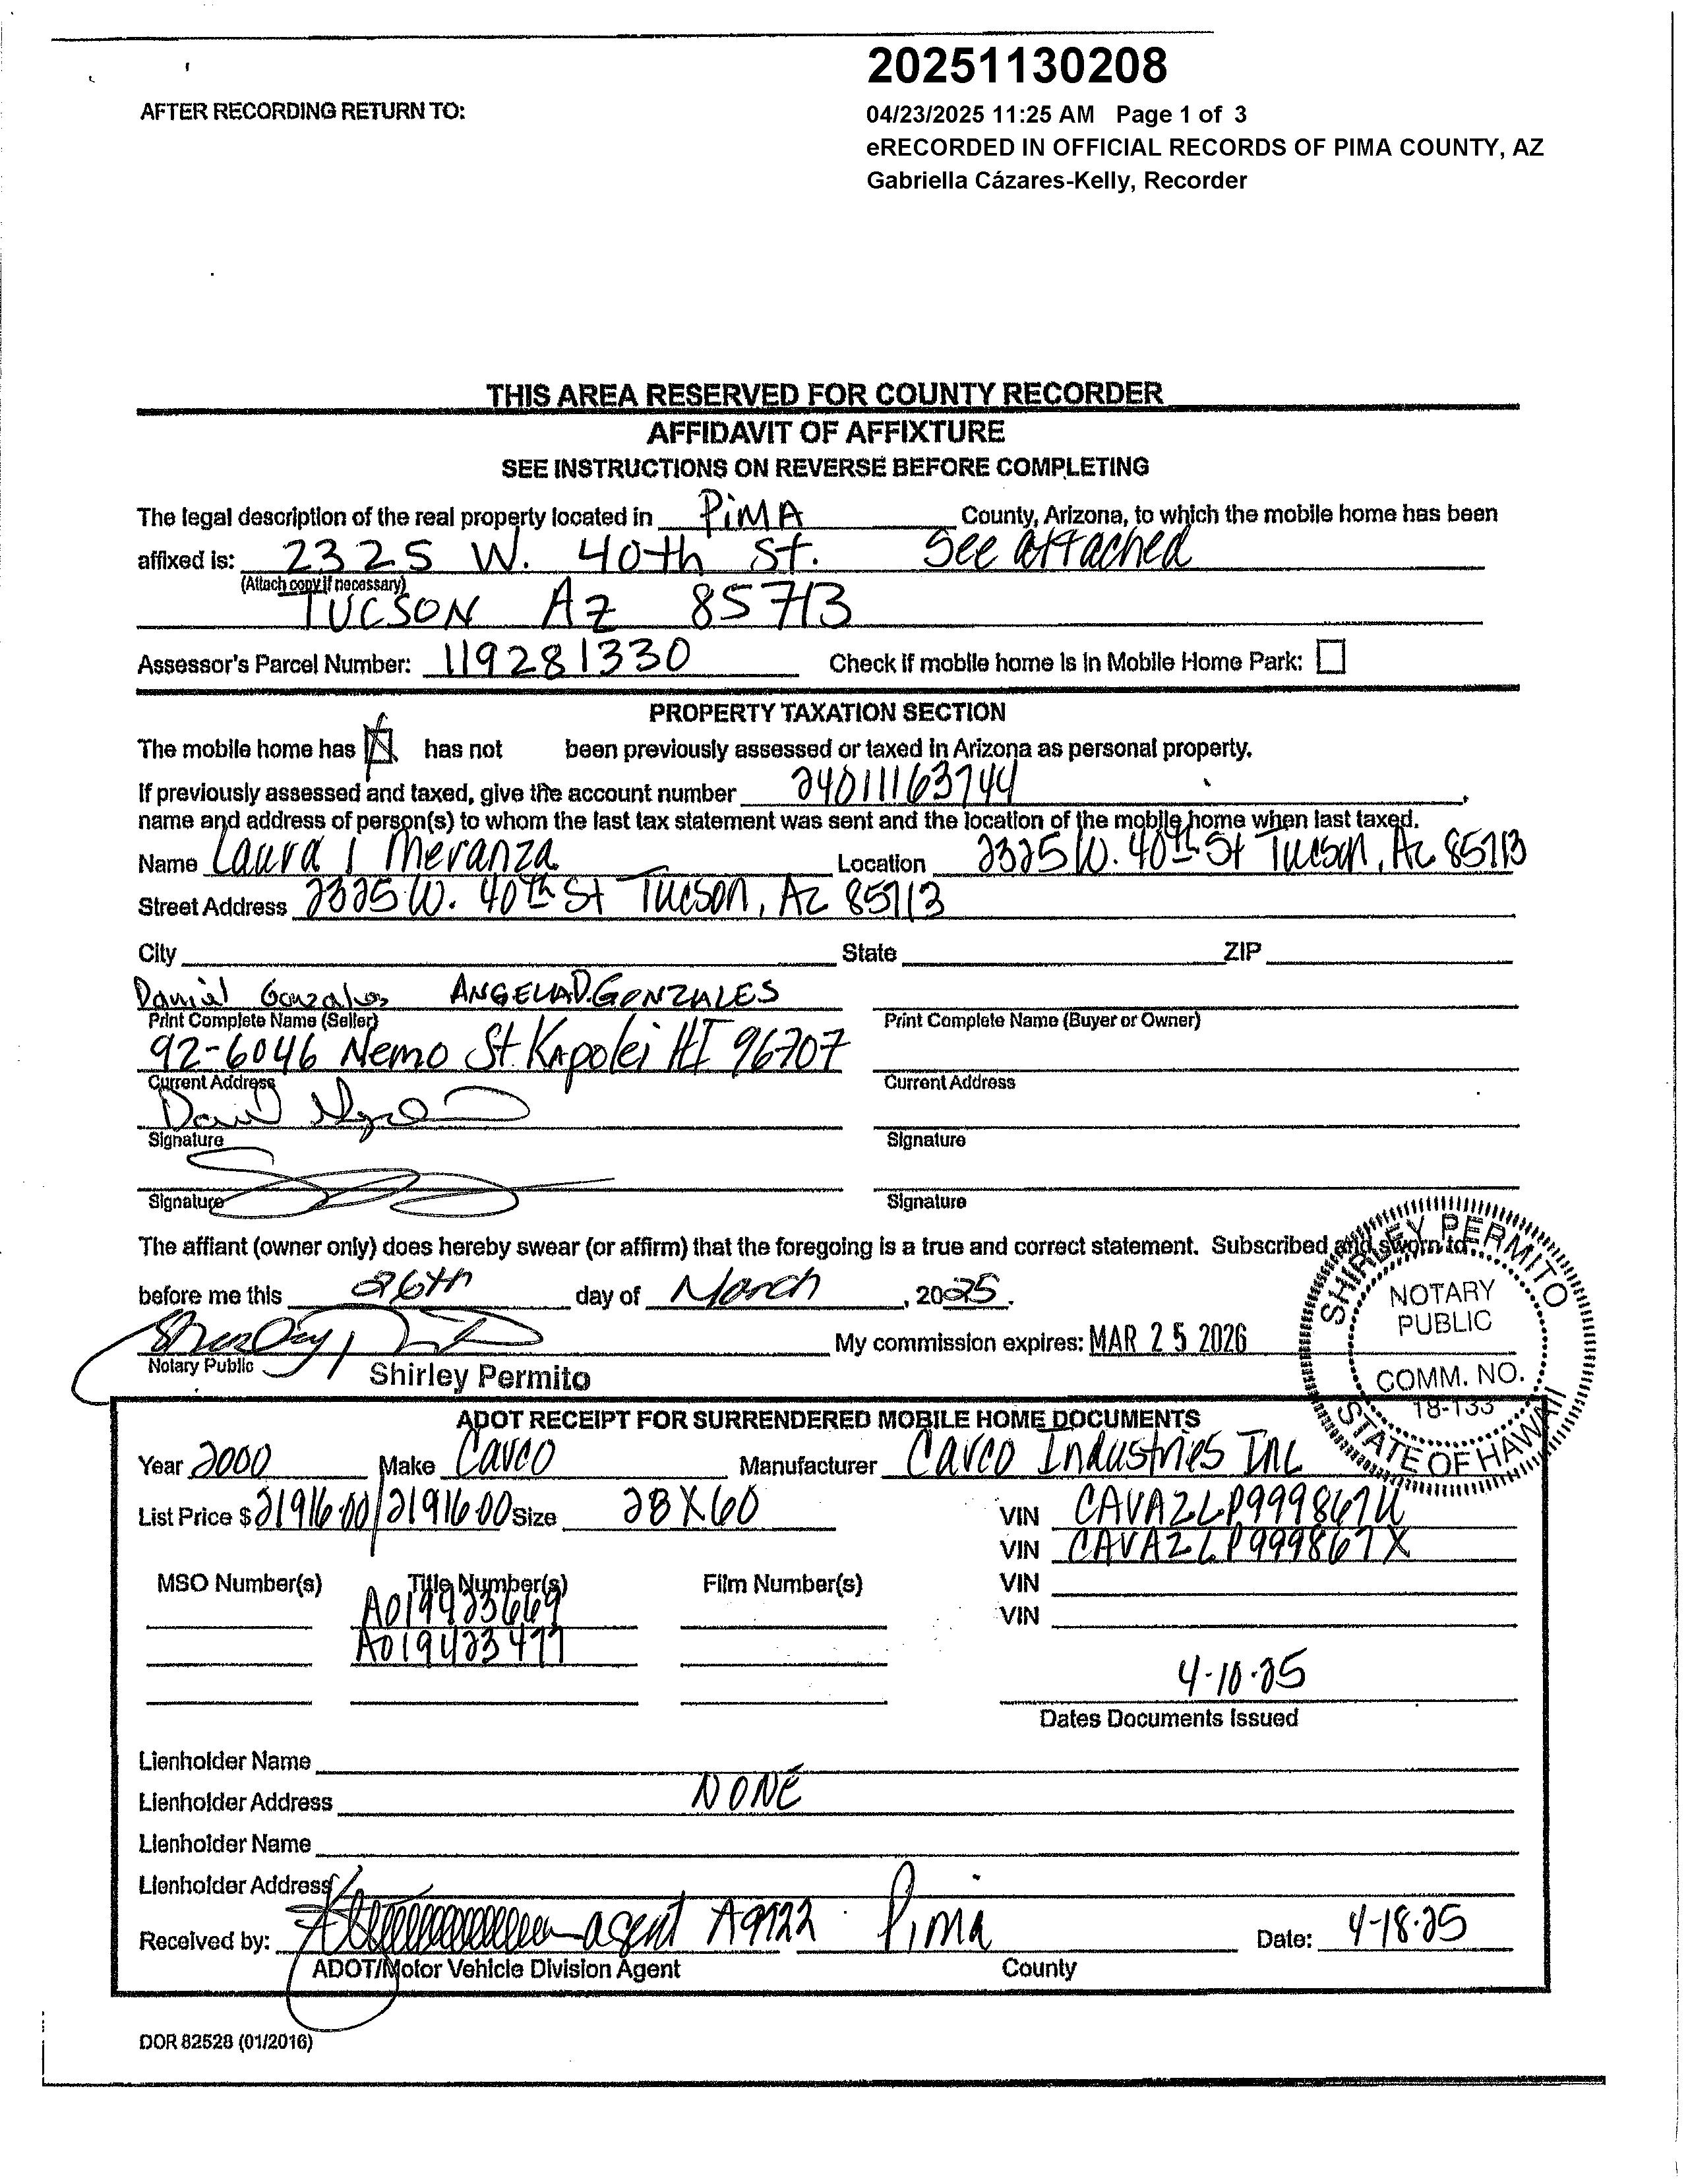 20251130208
04/23/2025 11:25 AM Page 1 of 3
eRECORDED IN OFFICIAL RECORDS OF PIMA COUNTY, AZ
Gabriella Cázares-Kelly, Recorder
AFTER RECORDING RETURN TO:
THIS AREA RESERVED FOR COUNTY RECORDER
AFFIDAVIT OF AFFIXTURE
SEE INSTRUCTIONS ON REVERSE BEFORE COMPLETING
The legal description of the real property located in PiMA County, Arizona, to which the mobile home has been
affixed is: 2325 W. 40th St. See attached
(Attach copy if necessary)
TUCSON AZ 85713
Assessor's Parcel Number: 119281330 Check if mobile home is in Mobile Home Park:
PROPERTY TAXATION SECTION
The mobile home has has not been previously assessed or taxed in Arizona as personal property.
If previously assessed and taxed, give the account number 24011163744,
name and address of person(s) to whom the last tax statement was sent and the location of the mobile home when last taxed.
Name Laura I Meranza Location 2325 W. 40th St Tucson, Az 85713
Street Address 2325 W. 40th St Tucson, Az 85713
City State ZIP
Daniel Gonzales ANGELIA D. GONZALES
Print Complete Name (Seller) Print Complete Name (Buyer or Owner)
92-6046 Nemo St. Kapolei HI 96707
Current Address Current Address
Signature Signature
Signature Signature
The affiant (owner only) does hereby swear (or affirm) that the foregoing is a true and correct statement. Subscribed and sworn to
before me this 26th day of March, 2025.
My commission expires: MAR 25 2026
Notary Public Shirley Permito
SHIRLEY PERMITO
NOTARY
PUBLIC
COMM. NO.
18-133
STATE OF HAWAII
ADOT RECEIPT FOR SURRENDERED MOBILE HOME DOCUMENTS
Year 2000 Make Cavco Manufacturer Cavco Industries Inc
List Price $ 21916.00/21916.00 Size 28X60 VIN CAVAZLP999867U
VIN CAVAZLP999867X
MSO Number(s) Title Number(s) Film Number(s) VIN
VIN
A019423477
4-10-25
Dates Documents Issued
Lienholder Name
Lienholder Address NONE
Lienholder Name
Lienholder Address
Received by: agent A9722 Pima Date: 4-18-25
ADOT/Motor Vehicle Division Agent County
DOR 82528 (01/2016)